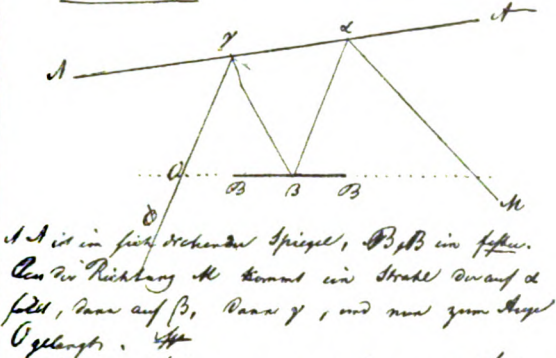 A
γ
α
A
a
B
β
B
M
O
A A ist ein sich drehender Spiegel, B, B ein fester.
Aus der Richtung M kommt ein Strahl der auf α
fällt, dann auf β, dann γ, und nun zum Auge
O gelangt.